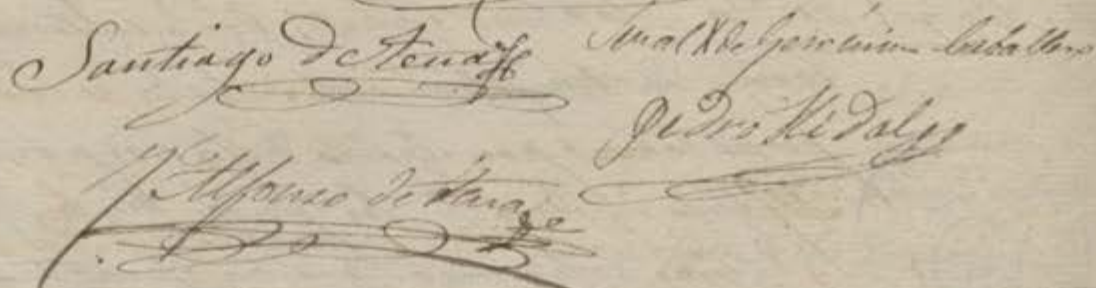 Santiago de Tena
Señal X de Geronimo Caballero
Pedro Hidalgo
Alfonso de